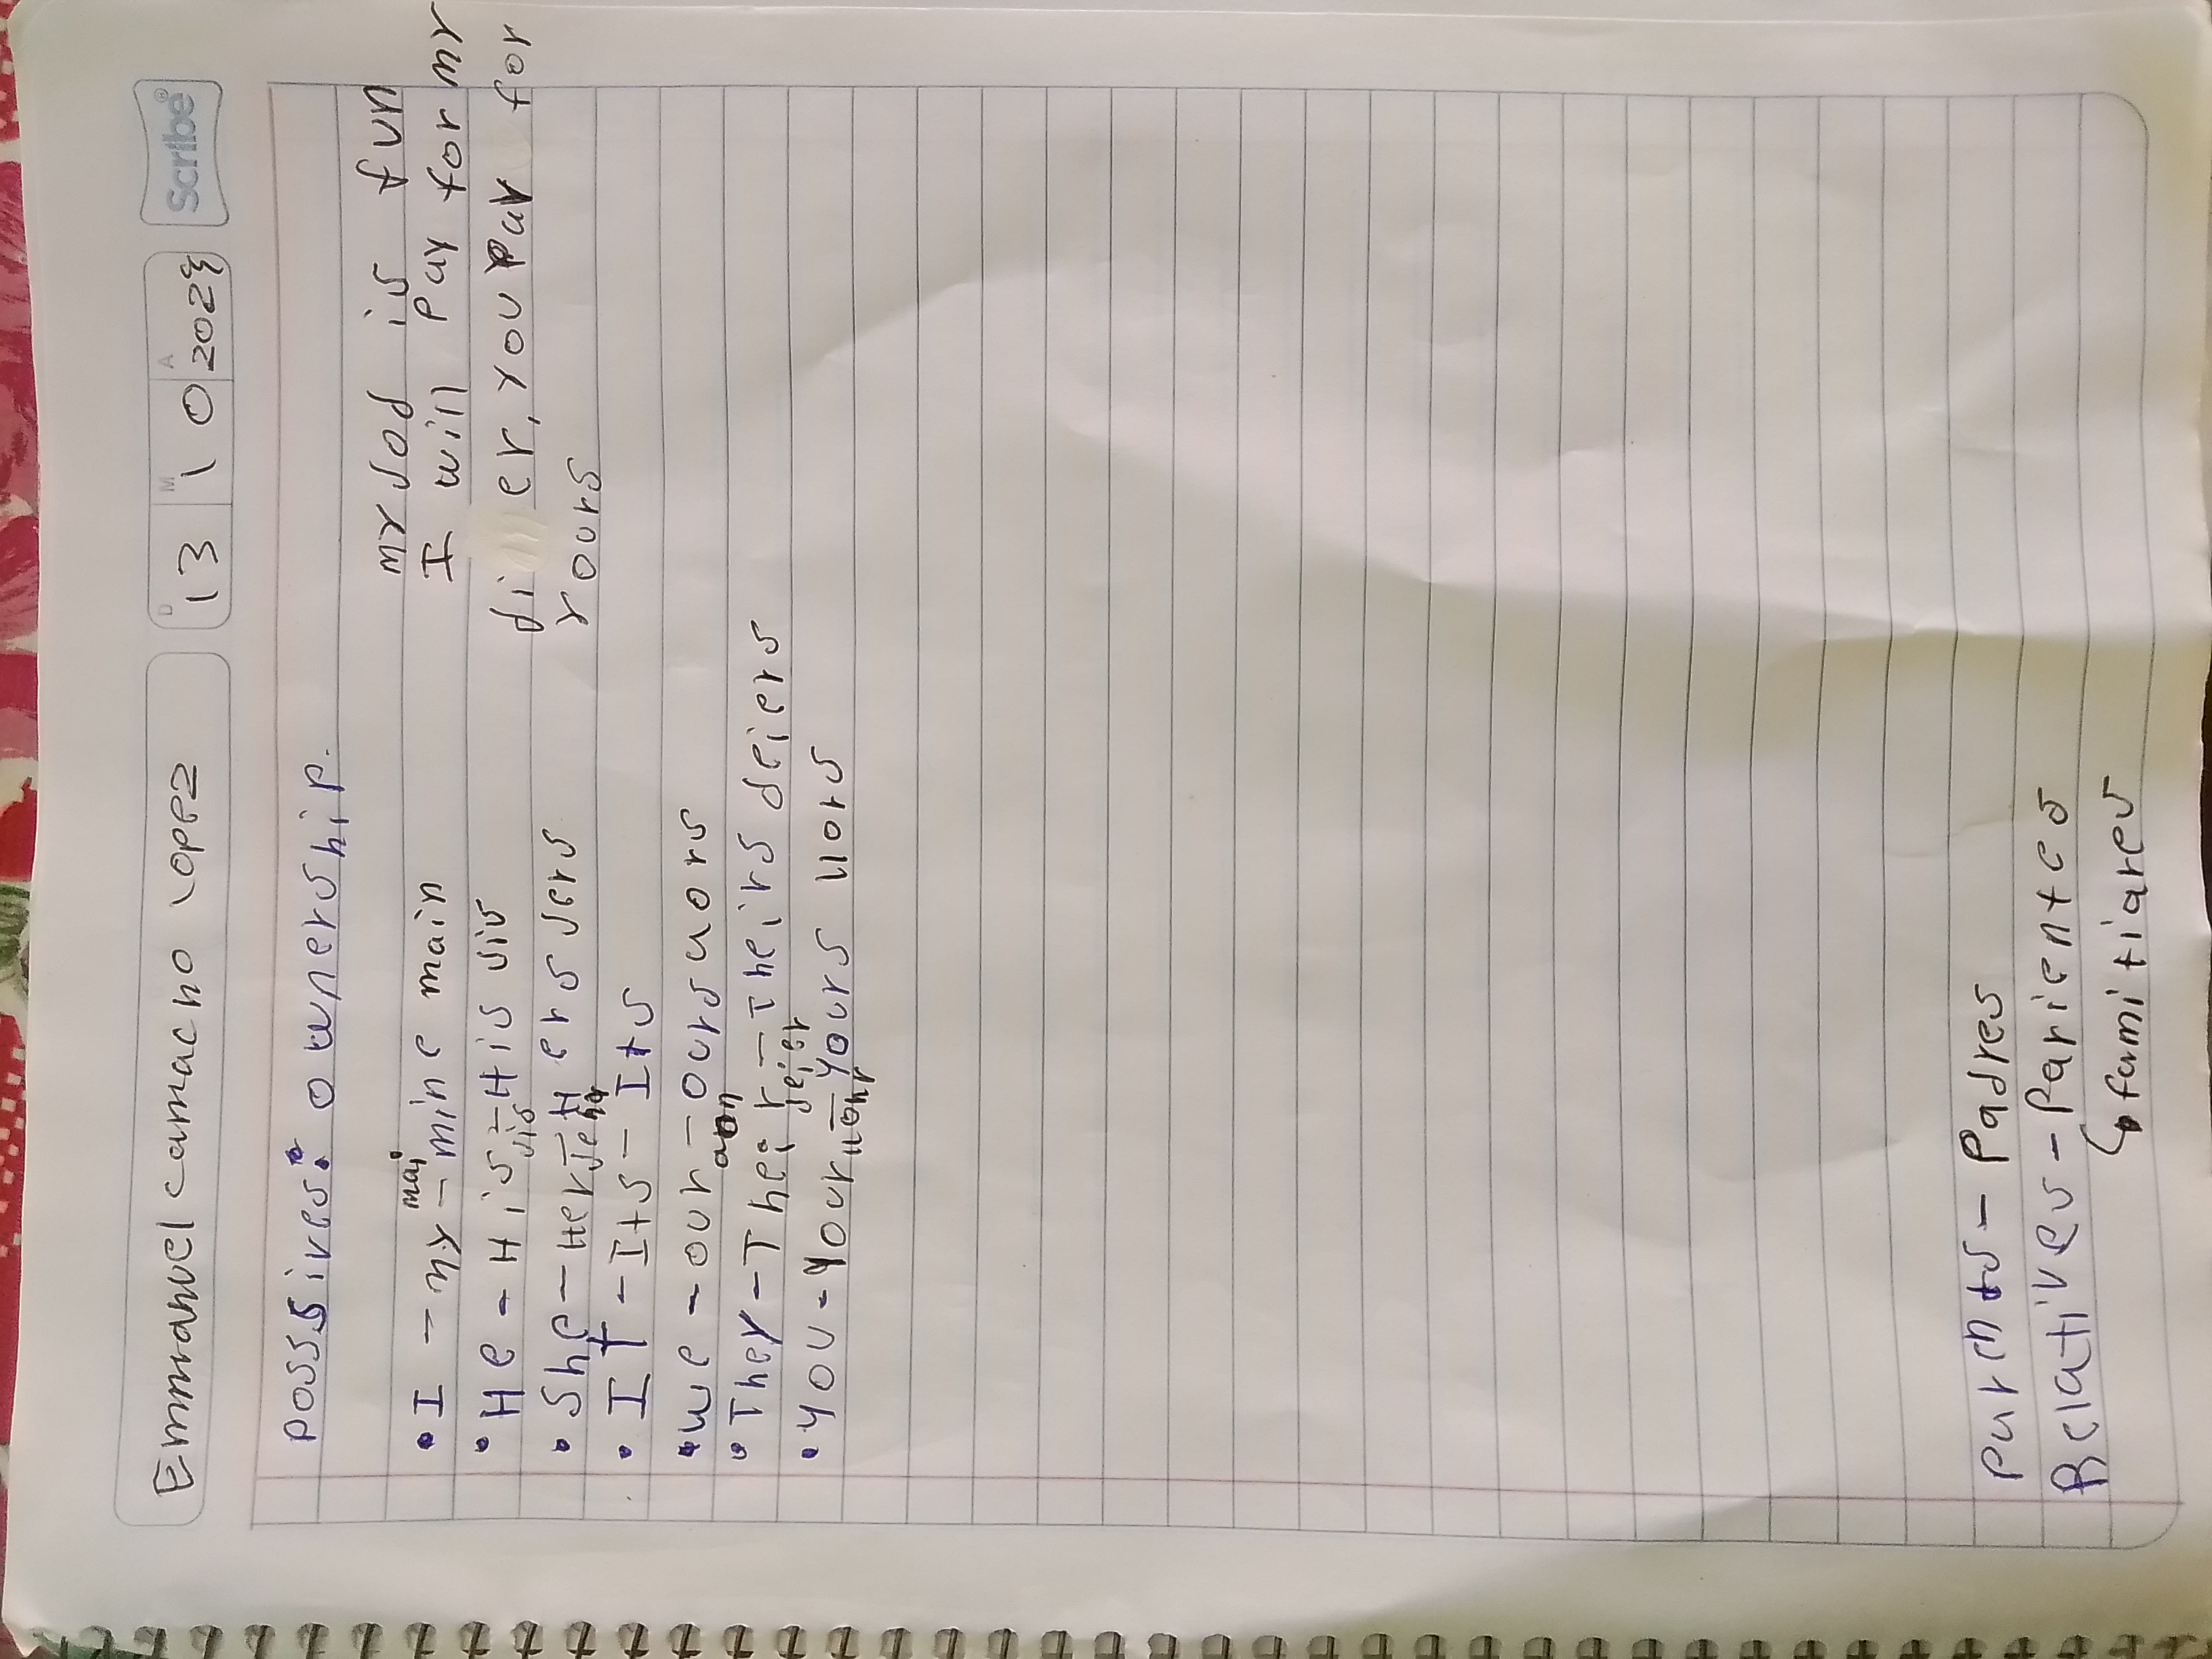 Emmanuel camacho lopez
D M A
13 10 2023
Scribe®
possives: ownership.
my dog is fun
I will pay for my
di er, you pay for
yours
mai
• I - my - mine main
• He - His - His jis
jis
• She - Her - Hers jers
jer
• It - Its - Its
• We - our - ours uors
• They - Their - Theirs deiers
deier
• you - your - yours llors
llour
Parents - Padres
Relatives - Parientes
familiares